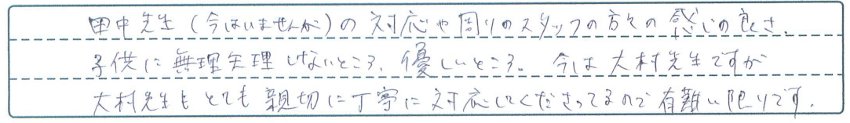 田中先生(今はいませんが)の対応や周りのスタッフの方々の感じの良さ、
子供に無理矢理しないところ、優しいところ。今は大村先生ですが
大村先生もとても親切に丁寧に対応してくださってるので有難い限りです。